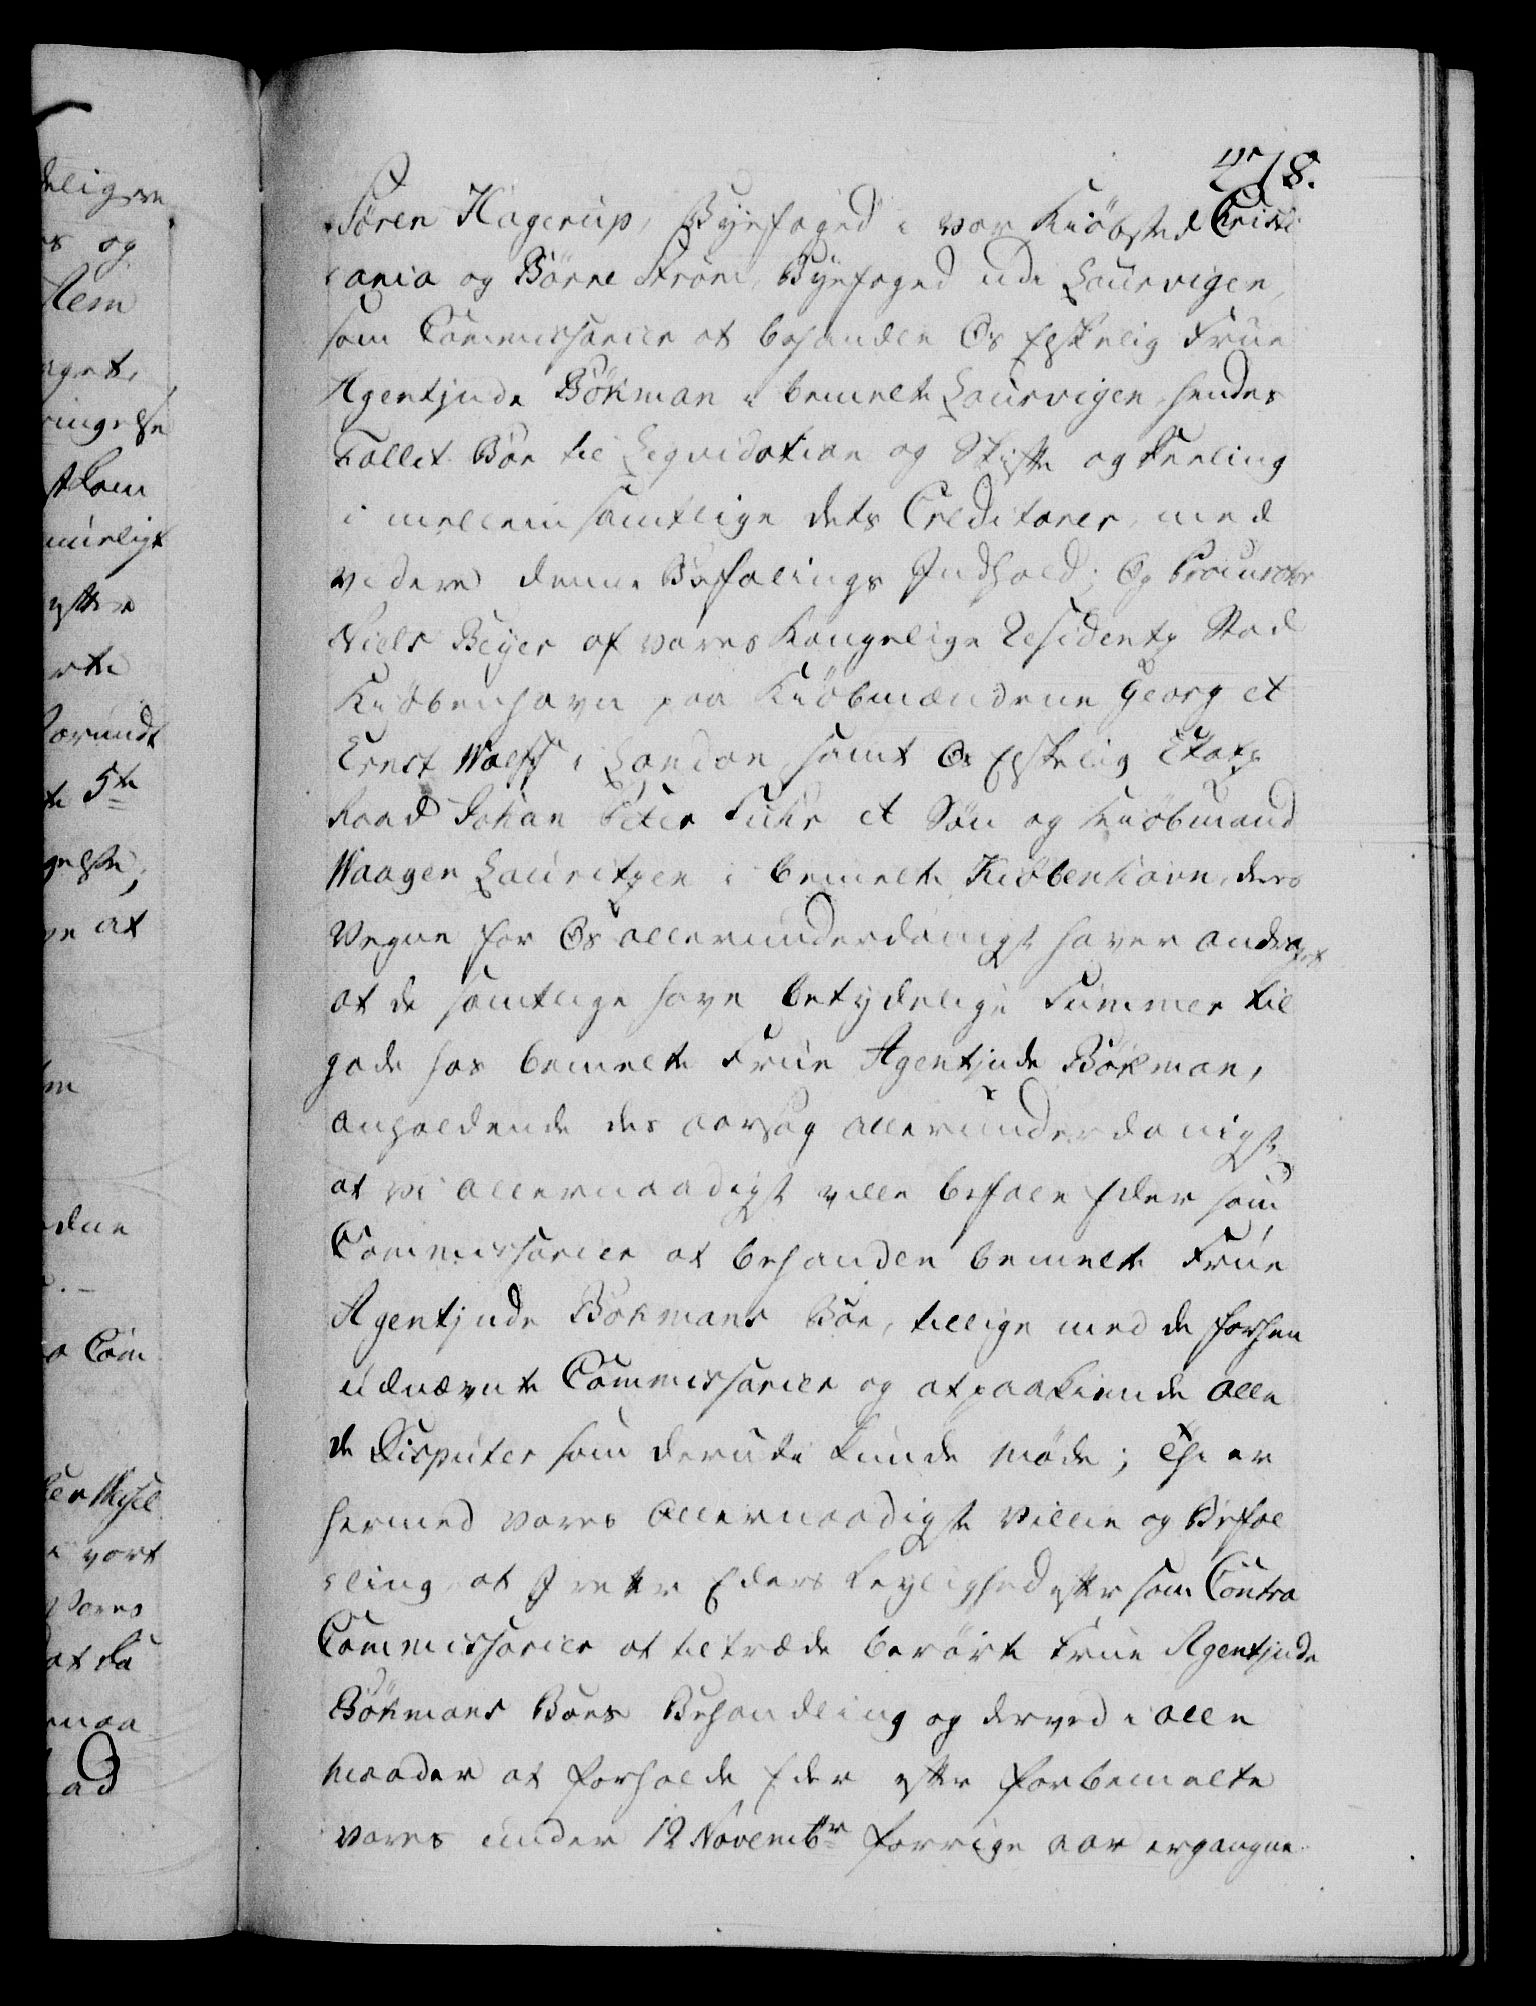 478.
Søren Hagerup, Byefoged i vor Kiöbsted Christi
ania og Börre Ström, Byefoged udi Laurvigen,
som Commissarier at behandle Os Elskelig Frue
Agentjnde Bökman i bemelte Laurvigen, hendes
Fallit Boe til Liqvidation og Skifte og Deeling
i mellem samtlige dets Creditorer, med
videre denne Befalings Indhold; Og Procurator
Niels Beyer af vores Kongelige Residentz Stad
Kiöbenhavn paa Kiöbmændene Georg et
Ernst Wolff i London, samt Os Elskelig Etatz
Raad Johan Peter Suhr et Sön og Kiöbmand
Waagen Lauritzen i bemelte Kiöbenhavn, deres
Vegne for Os allerunderdanigst haver andraget
at de samtlige have betydelige Summer til
gode hos bemelte Frue Agentjnde Bökman,
anholdende des aarsag allerunderdanigst
at vi allernaadigst ville befale Eder som
Commissarier at behandle bemelte Frue
Agentjnde Bökmans Boe, tillige med de forhen
udnævnte Commissarier og at paakiende alle
de Disputer som derudi kunde möde; Thi er
hermed vores allernaadigste Villie og Befal
ling, at I rette Eders Leylighed efter som Contra
Commissarier at tiltræde berörte Frue Agentjnde
Bökmans Boes Behandling og derved i alle
maader at forholde Eder efter forbemelte
vores under 12 Novembr forrige aar ergangne

deligere
es og
dem
aget,
ringelse
at kom
ytte
te 5te
at
vort
Vores
ad